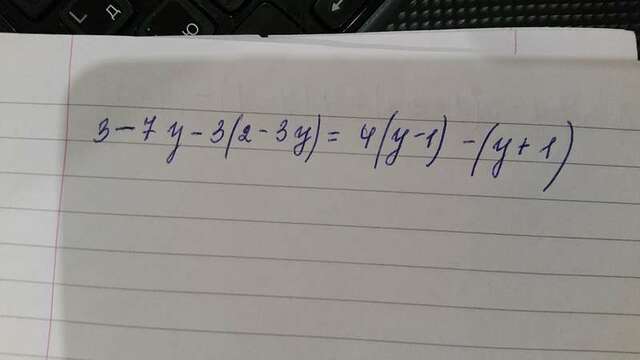 3 - 7y - 3(2 - 3y) = 4(y - 1) - (y + 1)
Д
Ю